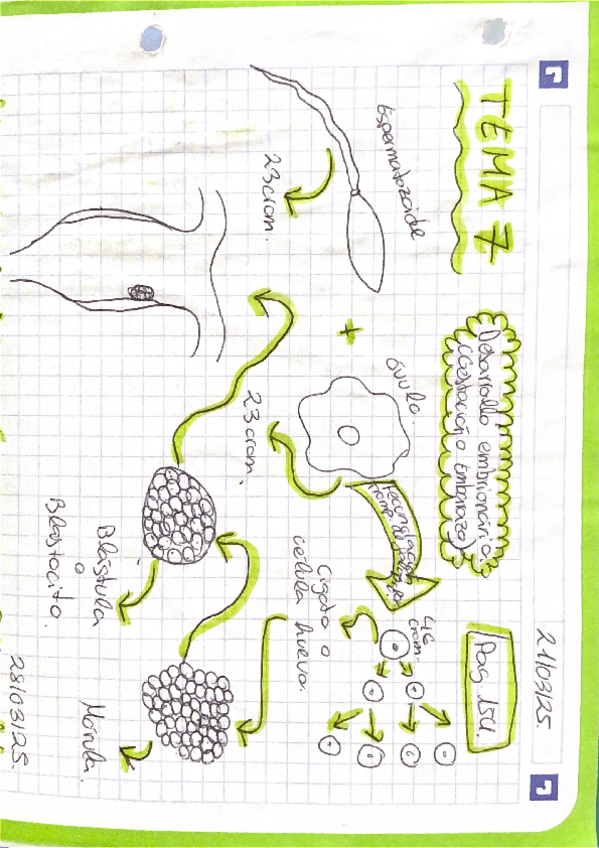 21/03/25.
TEMA 7
Desarrollo embrionario
(Gestación o Embarazo)
Pag 154.
Espermatozoide
23 crom.
+
óvulo.
23 crom.
46
crom.
Cigoto o
célula hueva.
Mórula.
Blástula
o
Blastocito.
28/03/25.